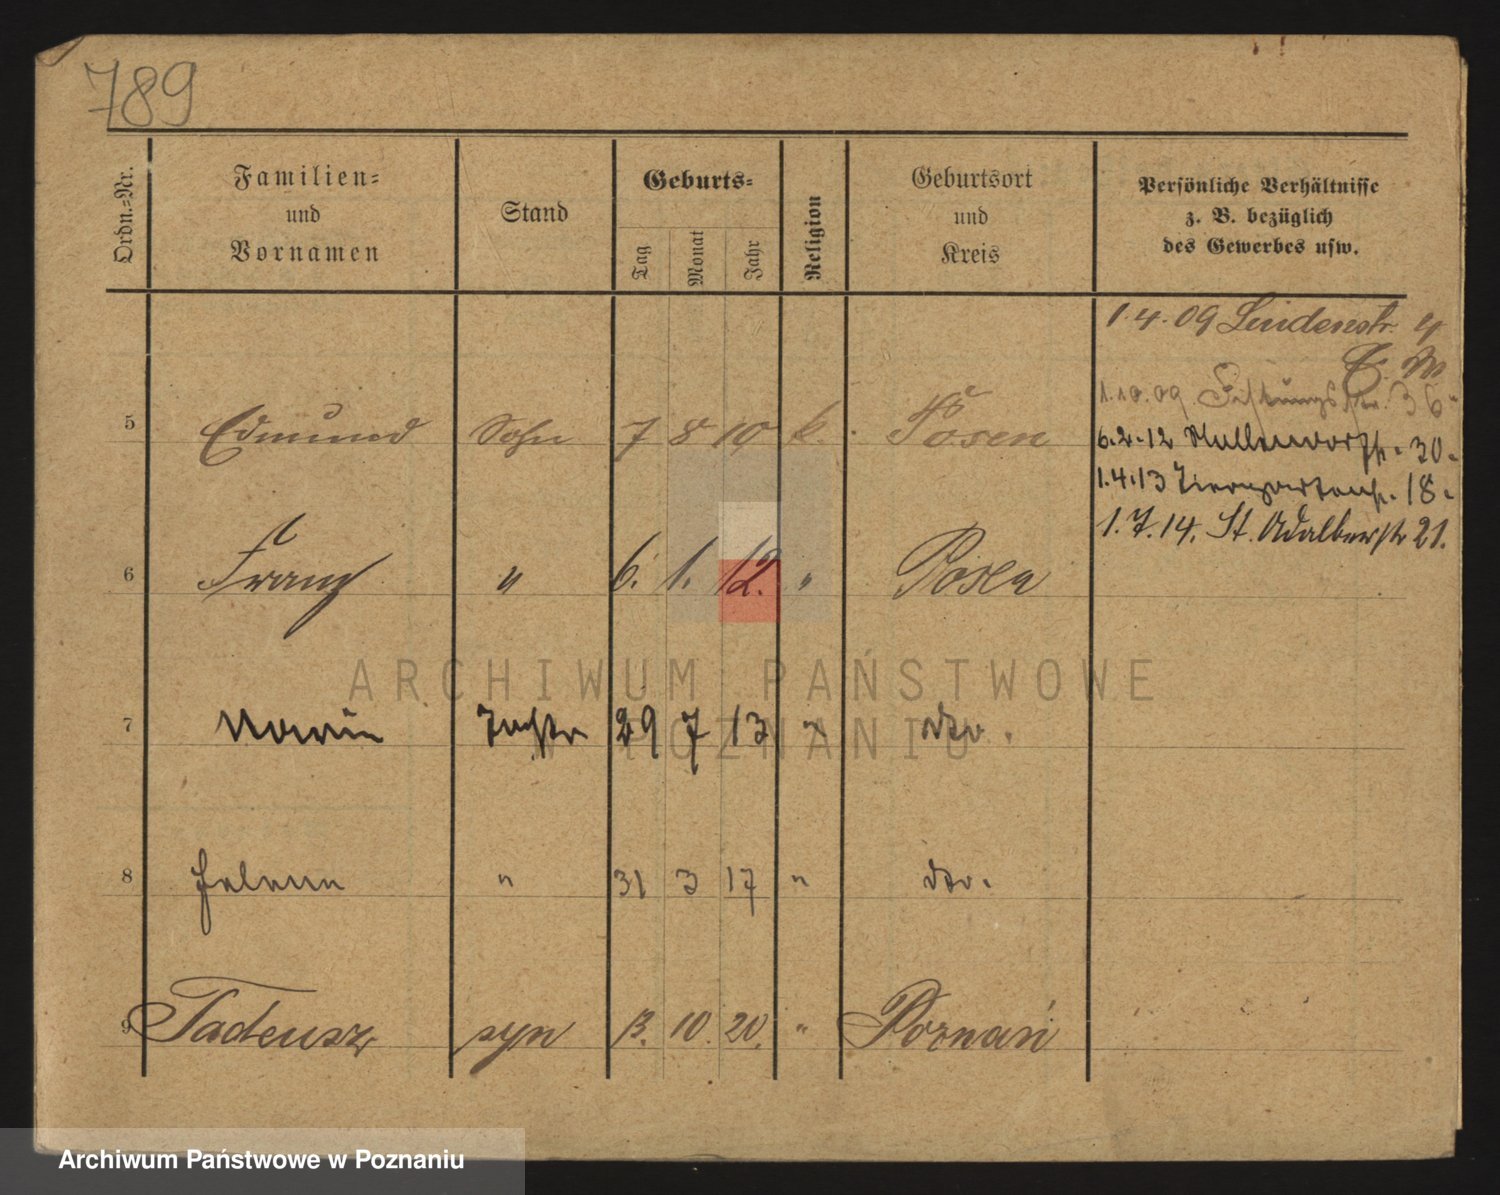 789
Ordn.=Nr.
Familien=
und
Vornamen
Stand
Geburts=
Tag
Monat
Jahr
Religion
Geburtsort
und
Kreis
Persönliche Verhältnisse
z. B. bezüglich
des Gewerbes usw.
1.4.09 Lindenstr. 4
1.10.09 Festungsstr. 36
6.2.12 30
1.4.13 Tiergartenstr. 18
1.7.14. St. Adalbertstr 21.
5 Edmund Sohn 7 8 10 k. Posen
6 Franz " 6. 1. 12. " Posen
7 Maria Tochter 29 7 13 " dto.
8 Helene " 31 3 17 " dto.
9 Tadeusz syn 13. 10. 20. " Poznań
ARCHIWUM PAŃSTWOWE
W POZNANIU
Archiwum Państwowe w Poznaniu